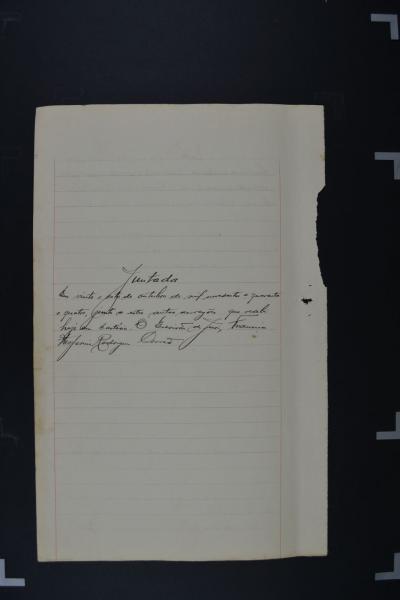 Juntada
Em vinte e sete de outubro de mil novecentos e quarenta
e quatro, junto a estes autos as razões que recebi
hoje em cartório. O Escrivão do Juri,
Rodrigues